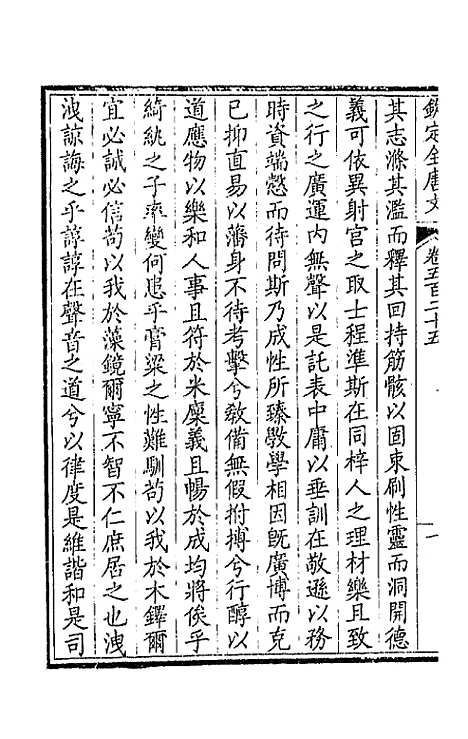 欽定全唐文 卷五百二十五 一
其志滌其濫而釋其回持筋骸以固束刷性靈而洞開德
義可依異射宮之取士程準斯在同梓人之理材樂且致
之行之廣運內無聲以是託表中庸以垂訓在敬遜以務
時資端愨而待問斯乃成性所臻斆學相因旣廣博而克
已抑直易以藩身不待考擊兮敎備無假拊搏兮行醇以
道應物以樂和人事且符於米廩義且暢於成均將俟乎
綺紈之子率變何患乎膏粱之性難馴苟以我於木鐸爾
宜必誠必信苟以我於藻鏡爾寧不智不仁庶居之也洩
洩諒誨之乎諄諄在聲音之道兮以律度是維諧和是司